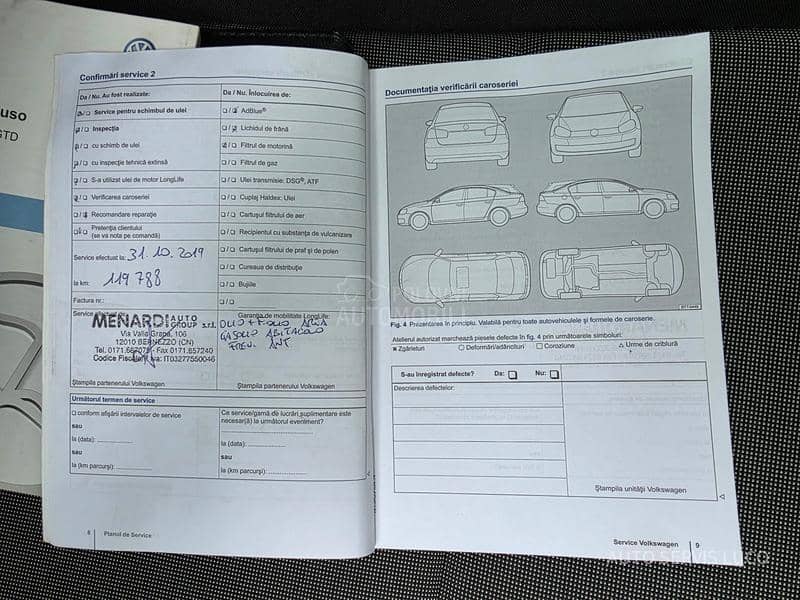 uso
GTD
Confirmări service 2
Da / Nu. Au fost realizate:
Service pentru schimbul de ulei
Inspecţia
cu schimb de ulei
cu inspecţie tehnică extinsă
S-a utilizat ulei de motor LongLife
Verificarea caroseriei
Recomandare reparaţie
Pretenţia clientului
(se va nota pe comandă)
Service efectuat la: 31.10.2019
la km: 119 788
Factura nr.:
Service efectuat de:
MENARDI AUTO GROUP s.r.l.
Via Valle Grana, 106
12010 BERNEZZO (CN)
Tel. 0171.687073 - Fax 0171.657240
Codice Fiscale P. IVA: IT03277550046
Ştampila partenerului Volkswagen
Următorul termen de service
conform afişării intervalelor de service
sau
la (data):
sau
la (km parcurşi):
Da / Nu. Înlocuirea de:
AdBlue®
Lichidul de frână
Filtrul de motorină
Filtrul de gaz
Ulei transmisie: DSG®, ATF
Cuplaj Haldex: Ulei
Cartuşul filtrului de aer
Recipientul cu substanţa de vulcanizare
Cartuşul filtrului de praf şi de polen
Cureaua de distribuţie
Bujiile
Garanţia de mobilitate LongLife:
OLIO + FOLIO ARIA
GASOLIO ABITACOLO
FREN. ANT
Ştampila partenerului Volkswagen
Ce service/gamă de lucrări suplimentare este
necesar(ă) la următorul eveniment?
la (data):
sau
la (km parcurşi):
6 Planul de Service
Documentaţia verificării caroseriei
Fig. 4 Prezentarea în principiu. Valabilă pentru toate autovehiculele şi formele de caroserie.
Atelierul autorizat marchează piesele defecte în fig. 4 prin următoarele simboluri:
Zgârieturi Deformări/adâncituri Coroziune Urme de criblură
S-au înregistrat defecte? Da: Nu:
Descrierea defectelor:
Ştampila unităţii Volkswagen
Service Volkswagen 9
POLOVNI
AUTOMOBILI
AUTO SERVIS LUCO